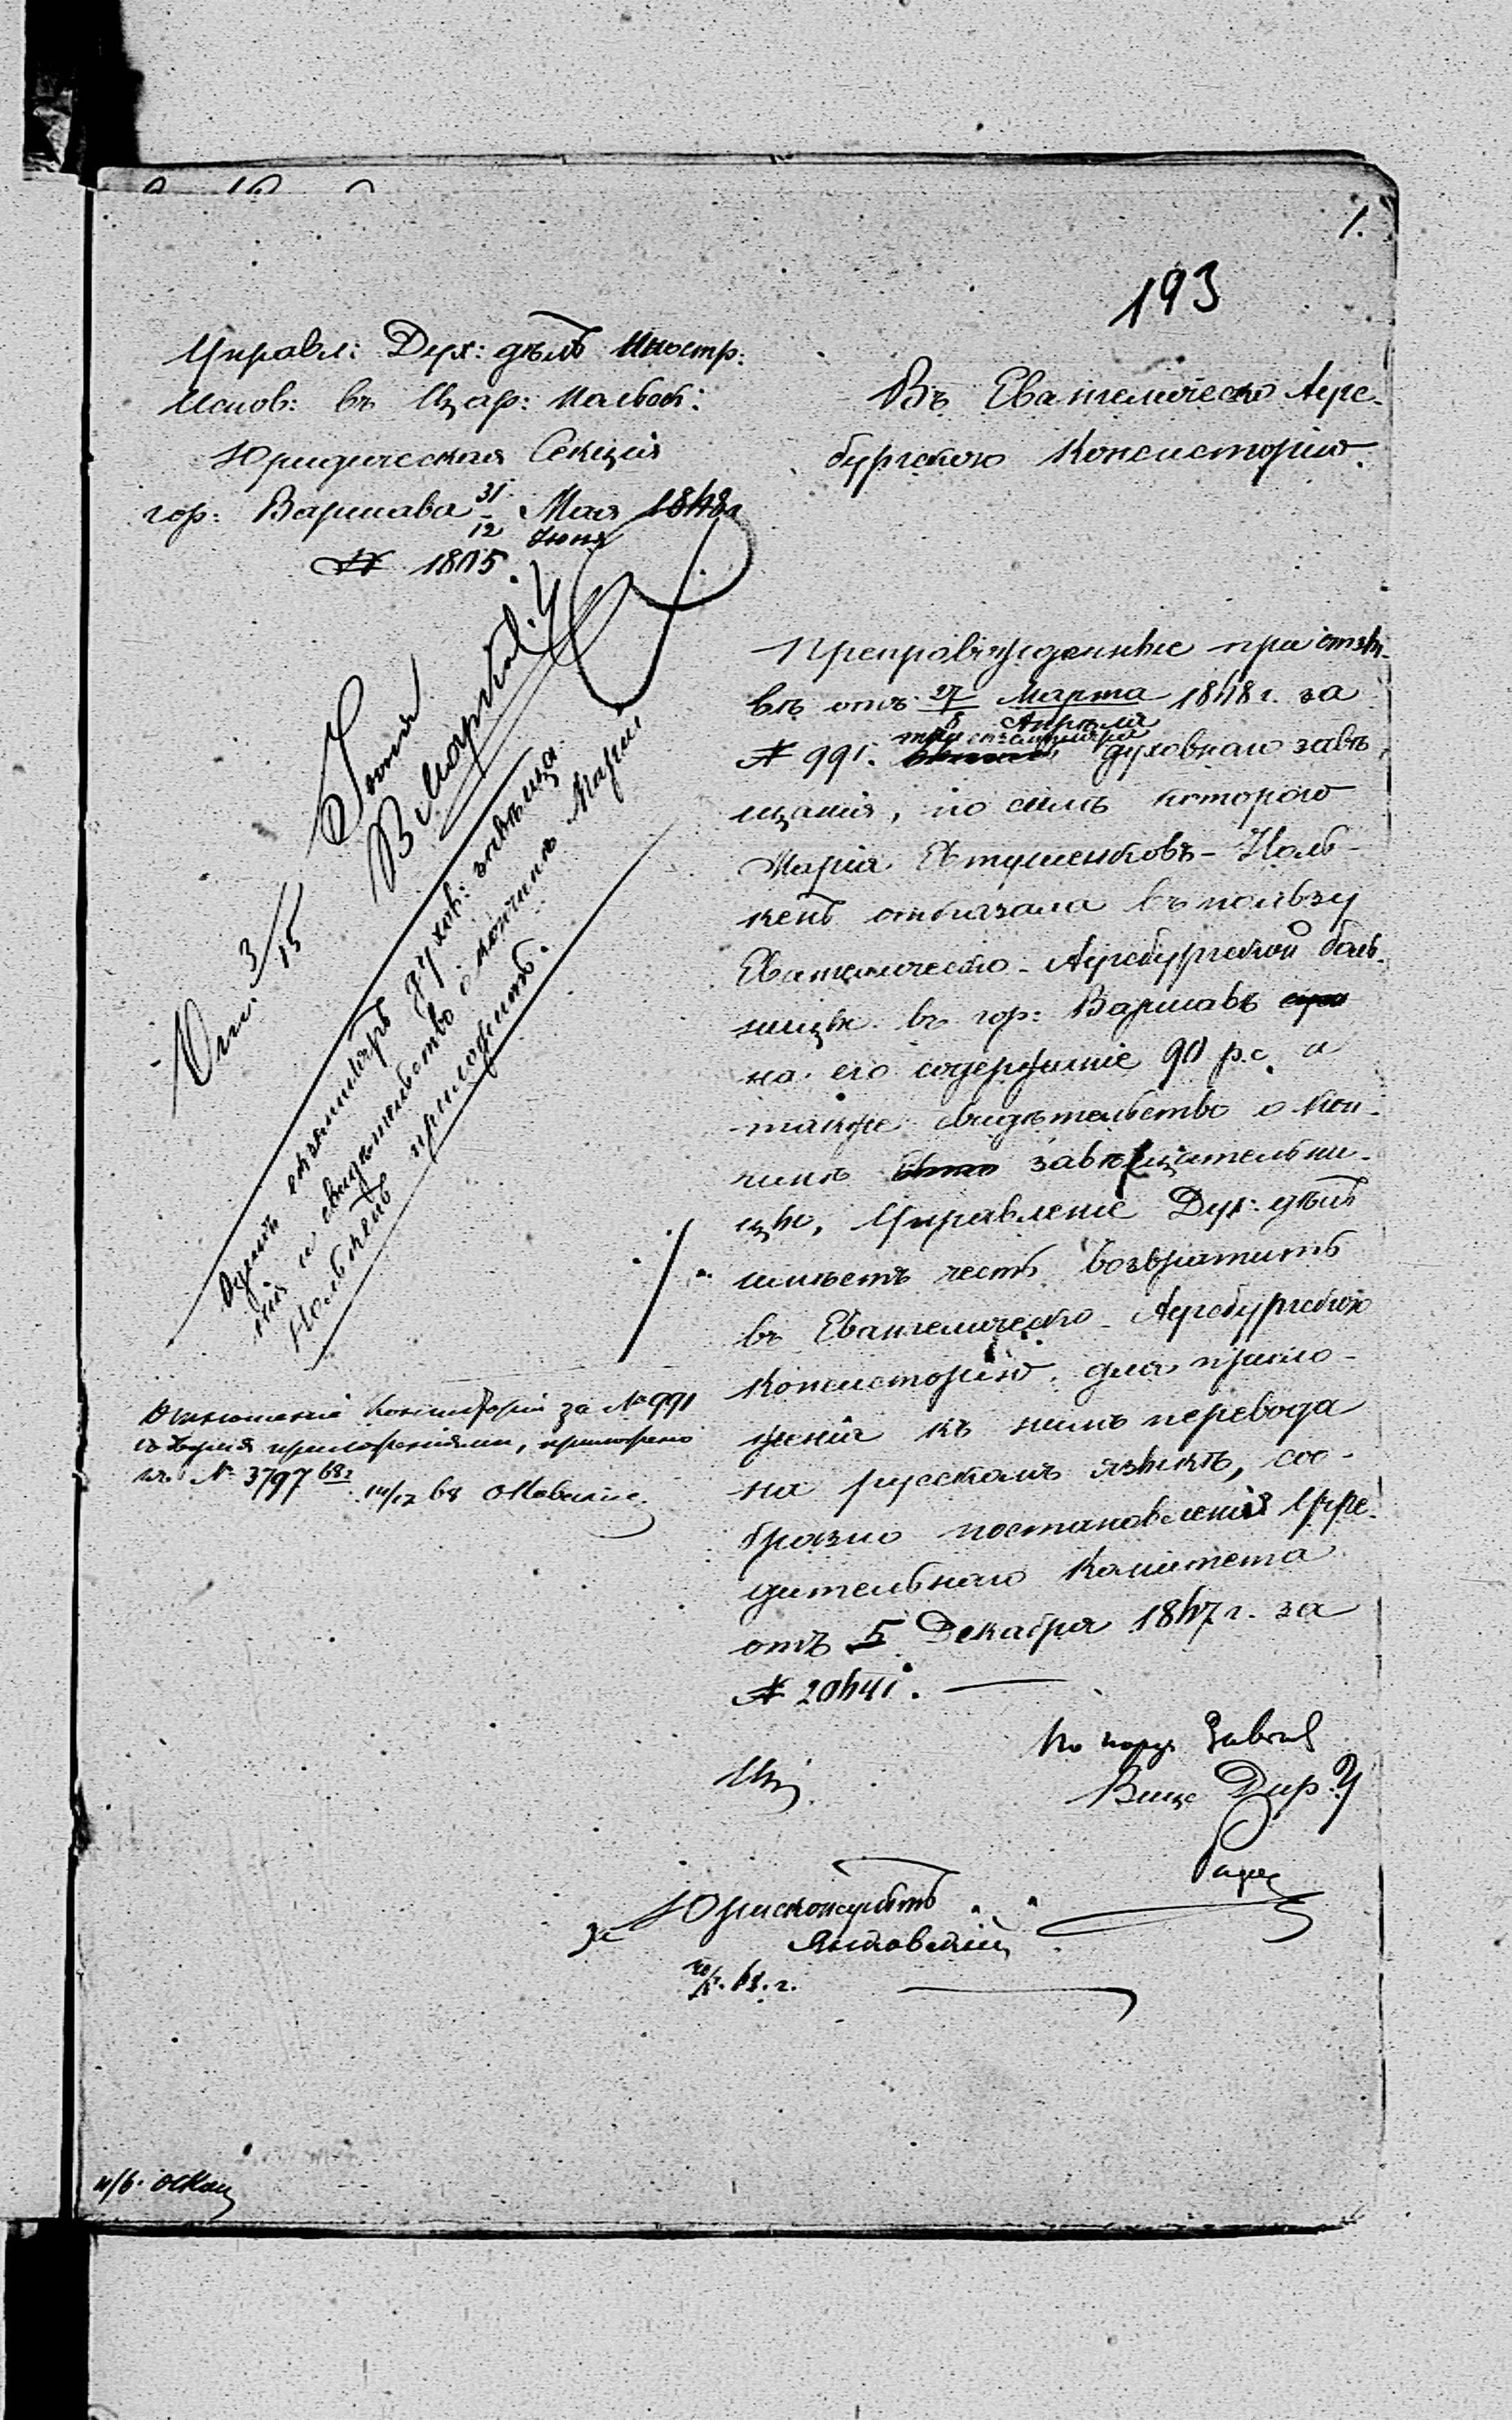 1.
193
Управл: Дух: дѣлъ Иностр:
Испов: въ Цар: Польск:
Юридическая Секція
гор: Варшава 31/12 Мая/Іюня 1868
№ 1805.
Въ Евангелическо Аугс-
бургскую Консисторію.
Препровожденные при отзы-
вѣ отъ 27 Марта/8 Апрѣля 1868 г. за
№ 991. три экземпляра духовнаго завѣ
щанія, по силѣ котораго
Марія
кенъ отказала въ пользу
Евангелическо-Аугсбургской боль-
ницы въ гор: Варшавѣ
на его содержаніе 90 р.с. а
также свидѣтельство о кон-
чинѣ завѣщательни-
цы, Управленіе Дух: дѣлъ
имѣетъ честь возвратить
въ Евангелическо-Аугсбургскую
Консисторію для прило-
женія къ нимъ перевода
на русскомъ языкѣ, соо-
бразно постановленія Учре-
дительнаго Комитета
отъ 5 Декабря 1867 г. за
№ 20641.
Вице Дир.
За Юрисконсультъ
Отп. 3/15 Іюня
Одинъ экземпляръ духов: завѣща
нія и свидѣтельство о кончинѣ Маріи
приложить.
Отношеніе Консисторіи за № 991
съ двумя приложеніями, приложено
къ № 3797 68 г.